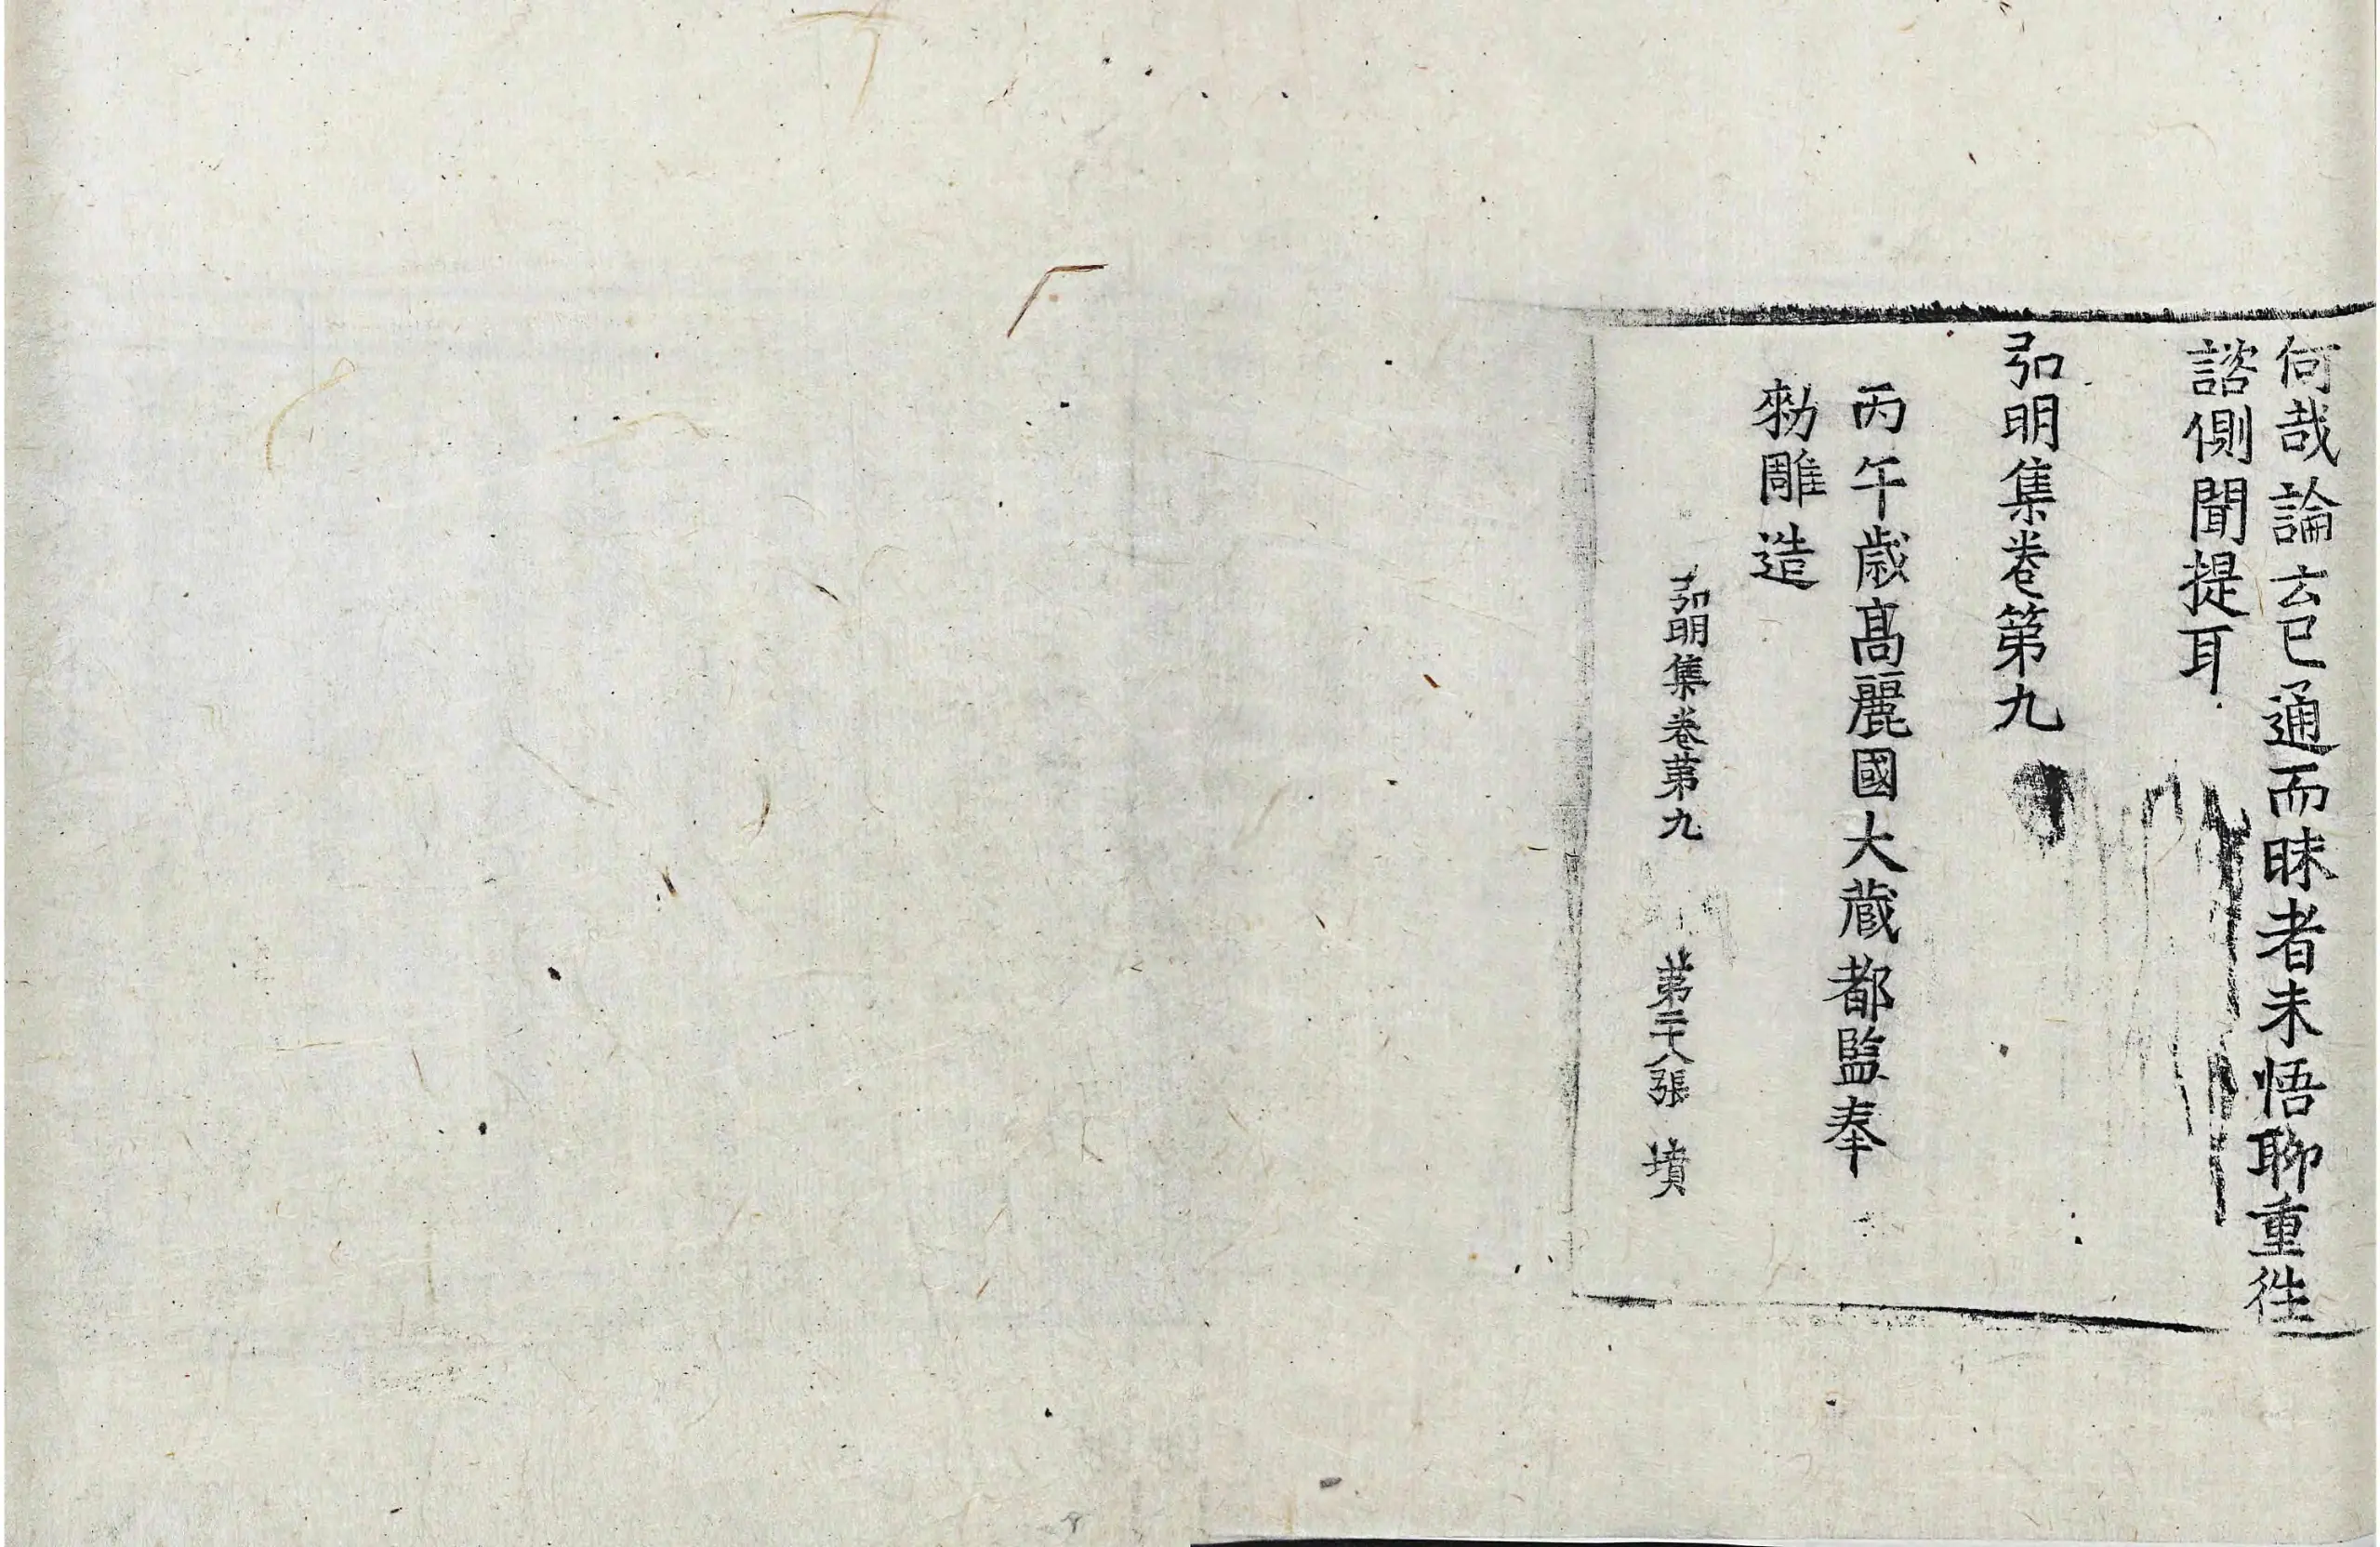 何哉論玄已通而昧者未悟聊重往
諮側聞提耳
弘明集卷第九
丙午歲高麗國大藏都監奉
勑雕造
弘明集卷第九 第二十八張 墳